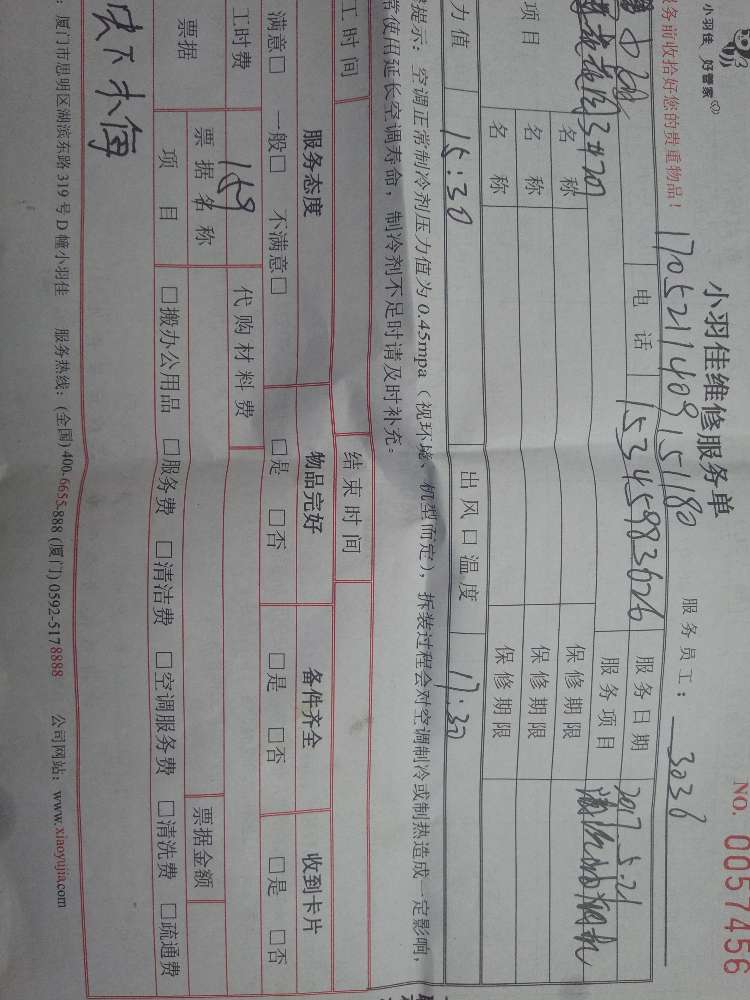 小羽佳 好管家
小羽佳维修服务单
NO. 0057456
务前收拾好您的贵重物品!
1705211409151180
服务员工: 3036
电话 15345983626 服务日期 2017.5.21
服务项目
项目
名称 保修期限
名称 保修期限
名称 保修期限
力值 15:30 出风口温度 17:30
提示: 空调正常制冷剂压力值为0.45mpa (视环境、机型而定), 拆装过程会对空调制冷或制热造成一定影响,
常使用延长空调寿命, 制冷剂不足时请及时补充。
工时间 结束时间
服务态度 物品完好 备件齐全 收到卡片
满意□ 一般□ 不满意□ □是 □否 □是 □否 □是 □否
工时费 159 代购材料费
票据 票据名称 票据金额
项目 □搬办公用品 □服务费 □清洁费 □空调服务费 □清洗费 □疏通费
: 厦门市思明区湖滨东路319号D幢小羽佳 服务热线: (全国) 400-6655-888 (厦门) 0592-5178888 公司网站: www.xiaoyujia.com